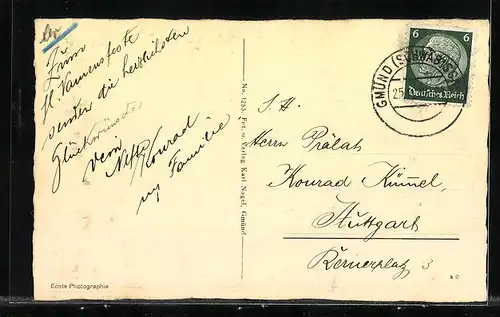 Br
Zum
hl. Namensfeste
senden die herzlichsten
Glückwünsche
Dein Neffe Konrad
u. Familie
No. 1253 Fot. u. Verlag Karl Nagel, Gmünd
Echte Photographie
6 6
Deutsches Reich
GMÜND (SCHWÄB)
25.
S. H.
Herrn Prälat
Konrad Kümmel,
Stuttgart
Bernerplatz 3